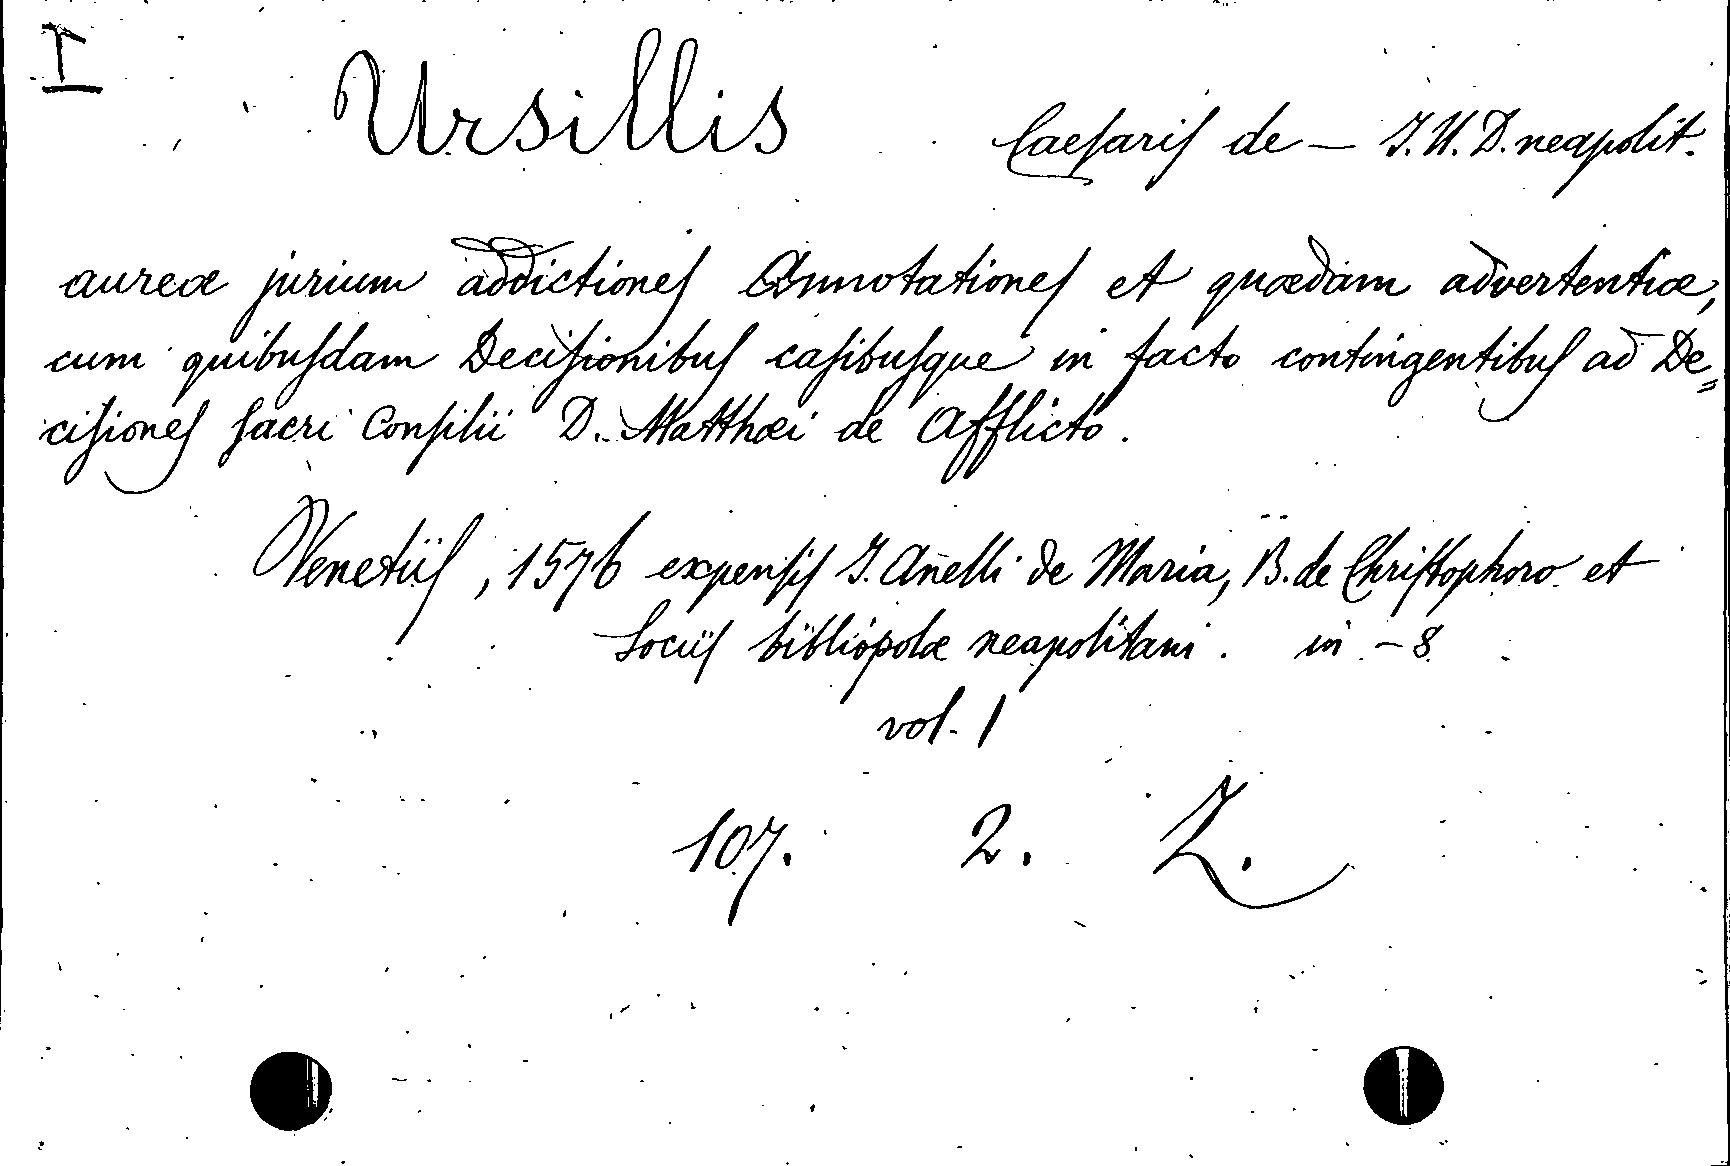 I
Ursillis Caesaris de — J. U. D. neapolit.
aureæ jurium addictiones Annotationes et quædam advertentiæ,
cum quibusdam Decisionibus casibusque in facto contingentibus ad De=
cisiones sacri Consilii D. Matthæi de Afflicto.
Venetiis, 1576 expensis J. Anelli de Maria, B. de Christophoro et
Sociis bibliopolæ neapolitani. in - 8
vol. 1
107. 2. Z.